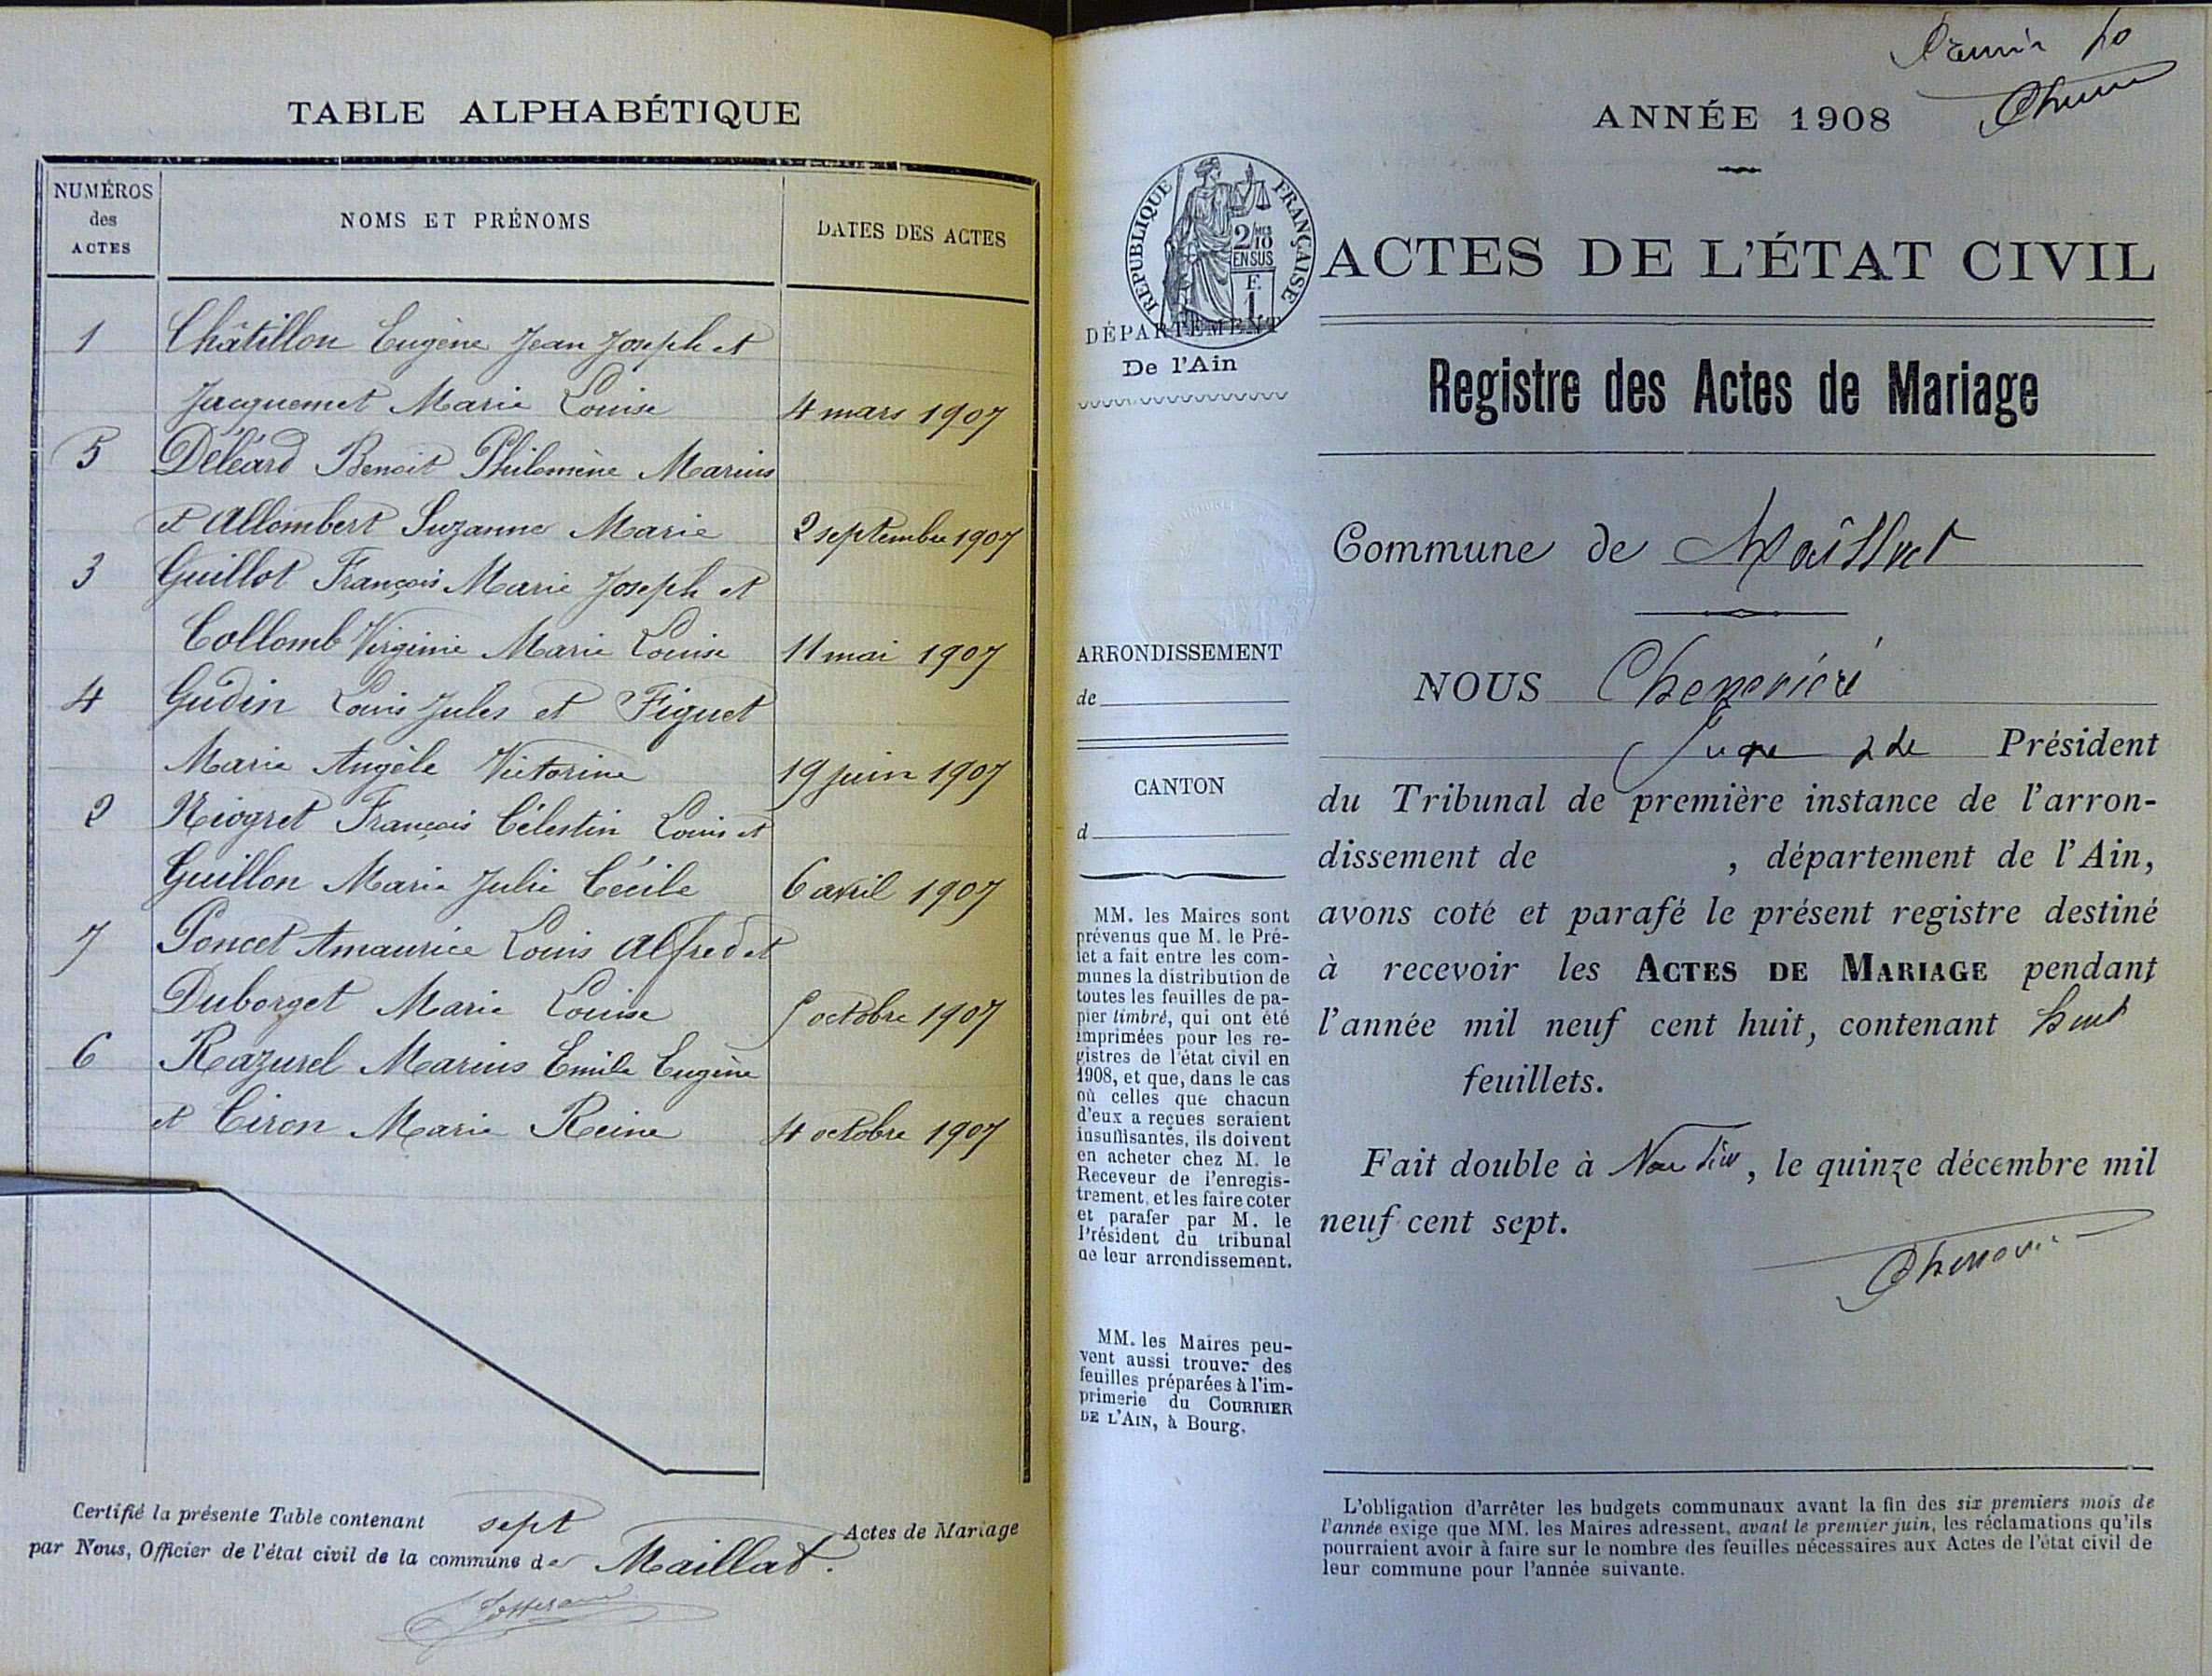 TABLE ALPHABÉTIQUE
NUMÉROS
des
ACTES
NOMS ET PRÉNOMS
DATES DES ACTES
1 Châtillon Eugène Jean Joseph et
Jacquemet Marie Louise 4 mars 1907
5 Déléard Benoit Philomène Marius
et Allombert Suzanne Marie 2 septembre 1907
3 Guillot François Marie Joseph et
Collomb Virginie Marie Louise 11 mai 1907
4 Gudin Louis Jules et Figuet
Marie Angèle Victorine 19 juin 1907
2 Niogret François Célestin Louis et
Guillon Marie Julie Cécile 6 avril 1907
7 Poncet Amaurice Louis Alfred et
Duborget Marie Louise 5 octobre 1907
6 Razurel Marius Emile Eugène
et Ciron Marie Reine 4 octobre 1907
Certifié la présente Table contenant sept Actes de Mariage
par Nous, Officier de l'état civil de la commune de Maillat.
ANNÉE 1908
RÉPUBLIQUE FRANÇAISE
2/10
EN SUS
F.
1
ACTES DE L'ÉTAT CIVIL
DÉPARTEMENT
De l'Ain
Registre des Actes de Mariage
Commune de Maillat
ARRONDISSEMENT
de
CANTON
d
MM. les Maires sont
prévenus que M. le Pré-
fet a fait entre les com-
munes la distribution de
toutes les feuilles de pa-
pier timbré, qui ont été
imprimées pour les re-
gistres de l'état civil en
1908, et que, dans le cas
où celles que chacun
d'eux a reçues seraient
insuffisantes, ils doivent
en acheter chez M. le
Receveur de l'enregis-
trement, et les faire coter
et parafer par M. le
Président du tribunal
de leur arrondissement.
MM. les Maires peu-
vent aussi trouver des
feuilles préparées à l'im-
primerie du COURRIER
DE L'AIN, à Bourg.
NOUS
Juge Président
du Tribunal de première instance de l'arron-
dissement de , département de l'Ain,
avons coté et parafé le présent registre destiné
à recevoir les ACTES DE MARIAGE pendant
l'année mil neuf cent huit, contenant huit
feuillets.
Fait double à Nantua, le quinze décembre mil
neuf cent sept.
L'obligation d'arrêter les budgets communaux avant la fin des six premiers mois de
l'année exige que MM. les Maires adressent, avant le premier juin, les réclamations qu'ils
pourraient avoir à faire sur le nombre des feuilles nécessaires aux Actes de l'état civil de
leur commune pour l'année suivante.